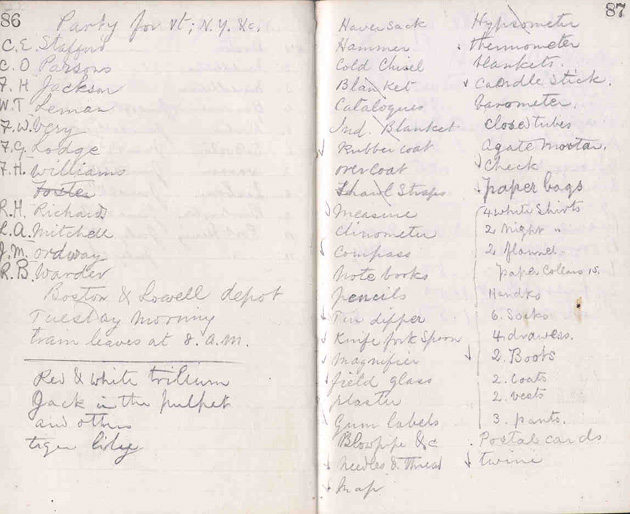 86
Party for Vt; N.Y. &c.
C. E. Stafford
C. O Parsons
F. H Jackson
W. T Leman
F. W. Very
F. G. Lodge
F. H. Williams
Foster
R. H. Richards
R. A. Mitchell
J. M. ordway
R. B. Warder
Boston & Lowell depot
Tuesday morning
train leaves at 8. A.M.
Red & white trillium
Jack in the pulpet
and others
tiger lily
87
Haver Sack
Hammer
Cold Chisel
Blanket
Catalogues
Ind. Blanket
Rubber coat
overcoat
Shawl Straps
Measure
clinometer
Compass
note books
pencils
Tin dipper
Knife fork Spoon
Magnifier
field glass
plaster
Gum labels
Blowpipe &c
needles & thread
Map
Hypsometer
thermometer
blankets.
Candle Stick.
barometer.
closed tubes
Agate Mortar.
Check
paper bags
4 white Shirts
2 Night "
2 flannel
paper Collars 15.
Handks
6. Socks
4. drawers.
2. Boots
2. Coats
2. vests
3. pants.
Postal cards
twine